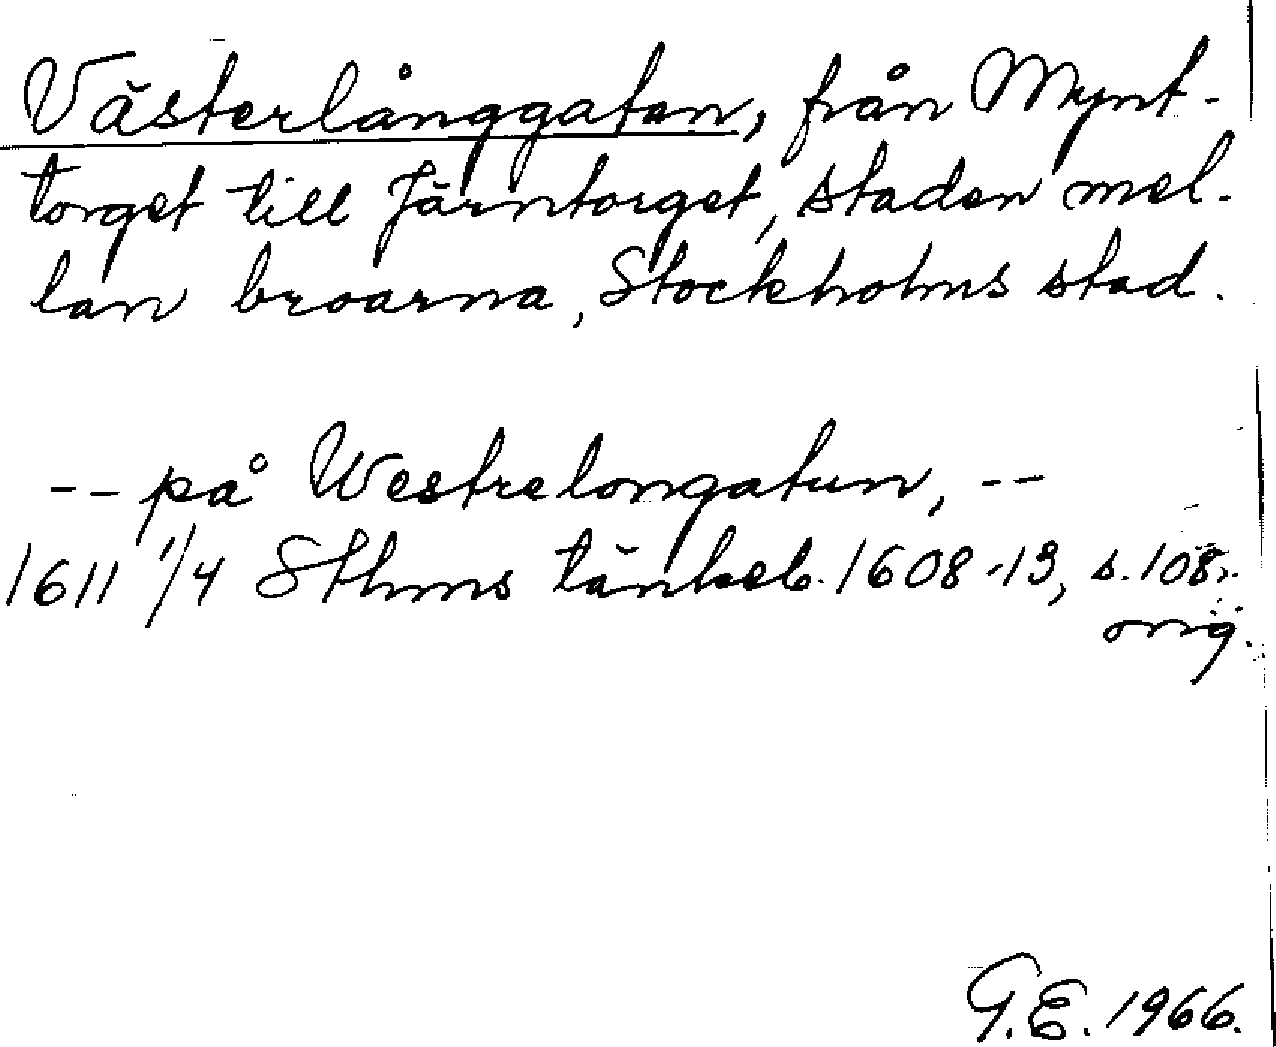 Västerlånggatan, från Mynt-
torget till Järntorget, staden mel-
lan broarna, Stockholms stad.
-- på Westrelongatun, --
1611 1/4 Sthms tänkeb. 1608-13, s. 108.
orig.
G.E. 1966.